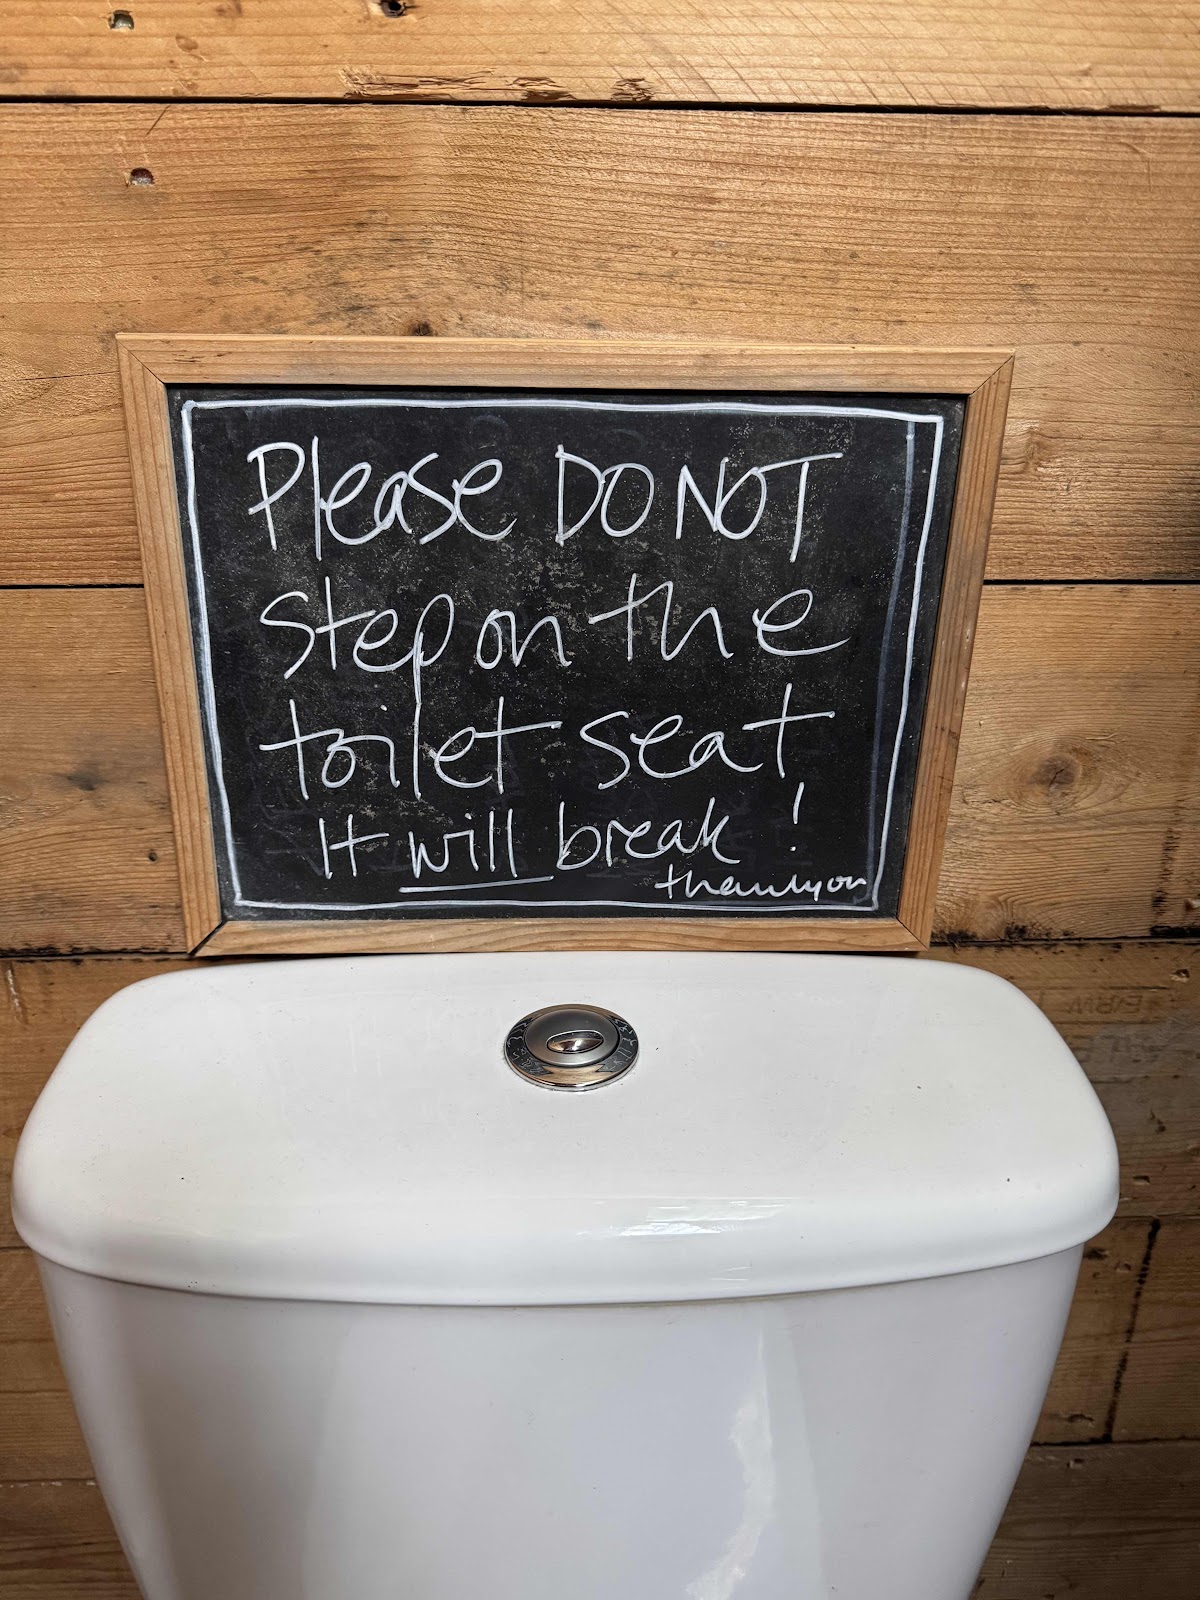 Please DO NOT
step on the
toilet seat
It will break!
thankyou